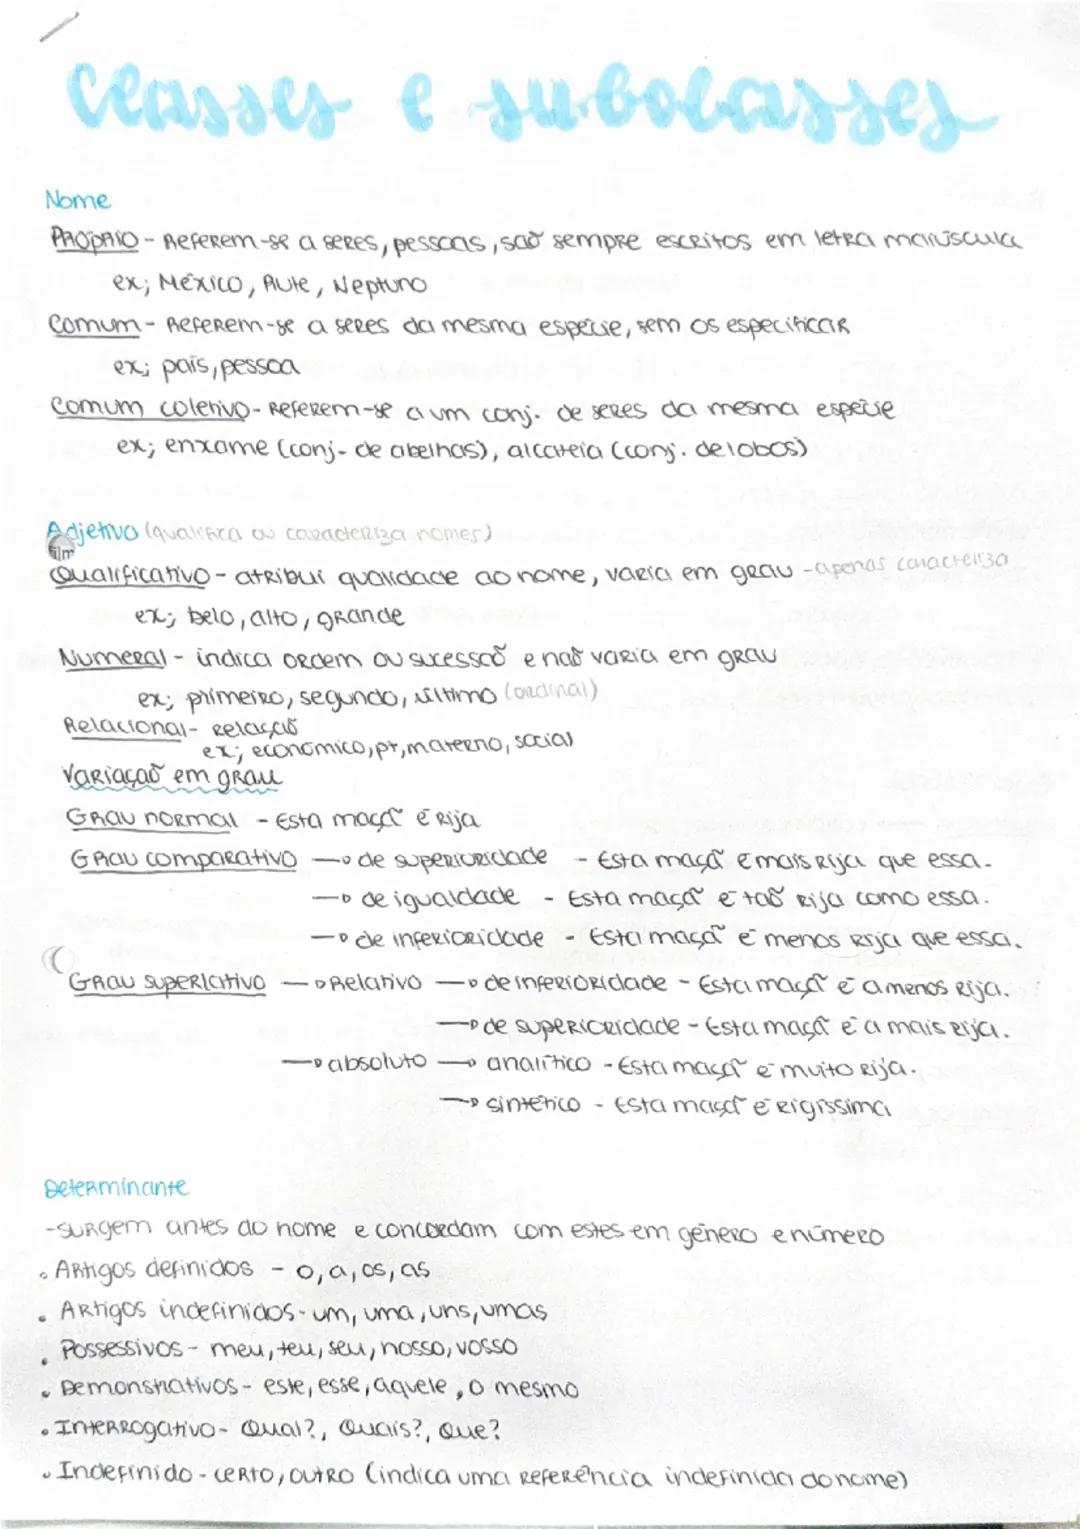 Classes e subclasses
Nome
Próprio - Referem-se a seres, pessoas, são sempre escritos em letra maiúscula
ex; México, Rute, Neptuno
Comum - Referem-se a seres da mesma espécie, sem os especificar
ex; país, pessoa
Comum coletivo - Referem-se a um conj. de seres da mesma espécie
ex; enxame (conj. de abelhas), alcateia (conj. de lobos)
Adjetivo (qualifica ou caracteriza nomes)
Qualificativo - atribui qualidade ao nome, varia em grau - apenas caracteriza
ex; belo, alto, grande
Numeral - indica ordem ou sucessão e não varia em grau
ex; primeiro, segundo, último (ordinal)
Relacional - relação
ex; económico, pt, materno, social
Variação em grau
Grau normal - Esta maçã é rija
Grau comparativo → de superioridade - Esta maçã é mais rija que essa.
→ de igualdade - Esta maçã é tão rija como essa.
→ de inferioridade - Esta maçã é menos rija que essa.
Grau superlativo → Relativo → de inferioridade - Esta maçã é a menos rija.
→ de superioridade - Esta maçã é a mais rija.
→ absoluto → analítico - Esta maçã é muito rija.
→ sintético - Esta maçã é rigíssima
Determinante
- surgem antes do nome e concordam com estes em género e número
• Artigos definidos - o, a, os, as
• Artigos indefinidos - um, uma, uns, umas
• Possessivos - meu, teu, seu, nosso, vosso
• Demonstrativos - este, esse, aquele, o mesmo
• Interrogativo - Qual?, Quais?, Que?
• Indefinido - certo, outro (indica uma referência indefinida do nome)